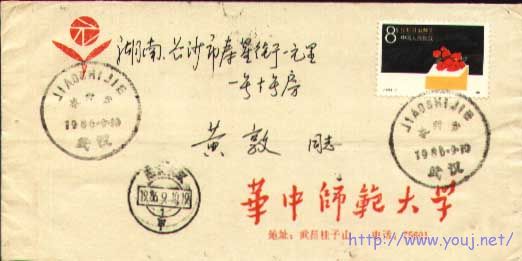 湖南.长沙市泰星街一元里
一号十号房
黄敦 同志
8分
中国人民邮政
JIAOSHIJIE
教师节
1986·9·10
武汉
JIAOSHIJIE
教师节
1986·9·10
武汉
1986.9.10.19
華中師範大学
地址：武昌桂子山 电话：75601
http://www.youj.net/